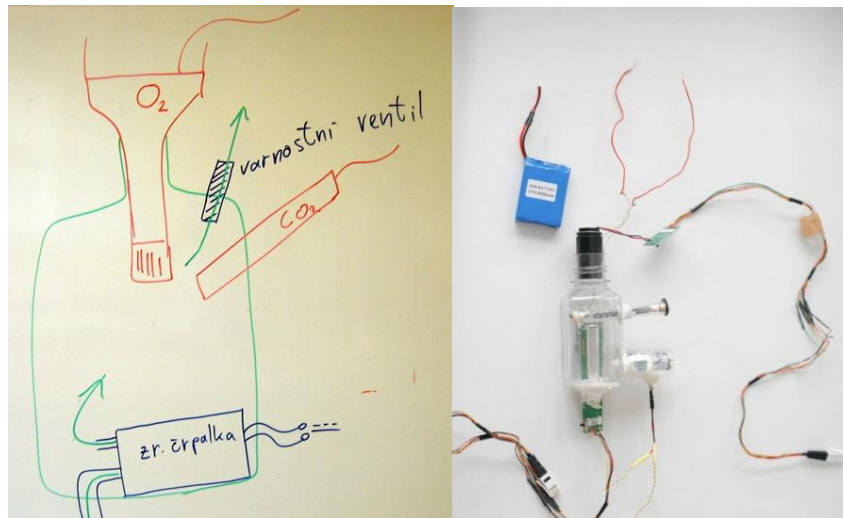 O₂
varnostni ventil
CO₂
zr. črpalka